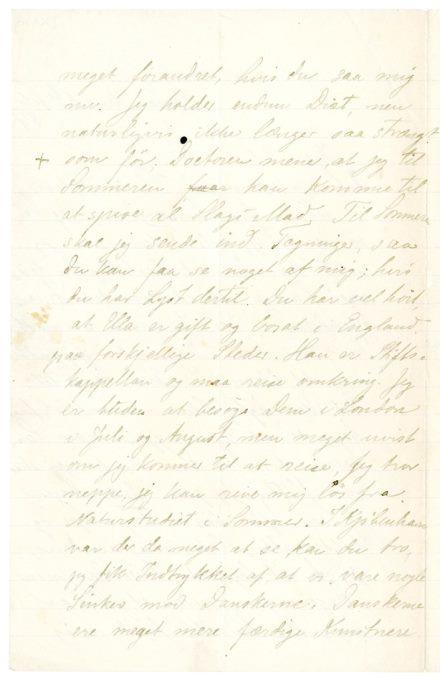 meget forandret, hvis du saa mig
nu. Jeg holder endnu Diæt, men
naturligvis ikke længer saa strængt
+ som før; Doctoren mener, at jeg til
Sommeren faar kan komme til
at spise al Slags Mad. Til Sommeren
skal jeg sende ind Tegninger, saa
du kan faa se noget af mig; hvis
du har Lyst dertil. Du har vel hørt,
at Ella er gift og bosat i England,
paa forskjellige Steder. Han er Skibs-
kappellan og maa reise omkring. Jeg
er buden at besøge dem i London
i Juli og August, men meget uvist
om jeg kommer til at reise, Jeg tror
neppe, jeg kan rive mig løs fra
Naturstudiet i Sommer. I Kjøbenhavn
var der da meget at se kan du tro,
jeg fik Indtrykket af at vi vare nogle
Sinker mod Danskerne. Danskerne
ere meget mere færdige Kunstnere